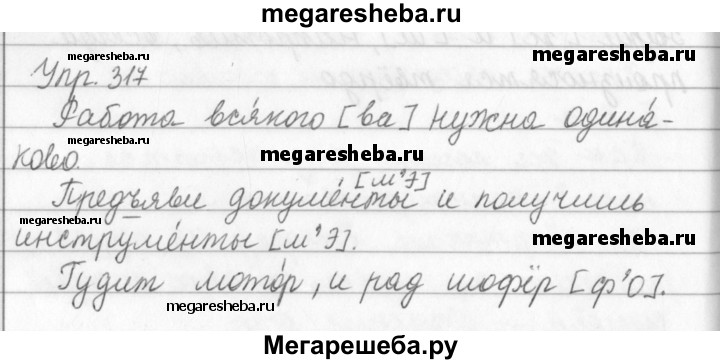 megaresheba.ru
megaresheba.ru
Упр. 317
Работа вся́кого [ва] нужна одина́-
ково.
megaresheba.ru
[м'Э]
Предъяви докуме́нты и получишь
megaresheba.ru
инструме́нты [м'Э].
megaresheba.ru
Гудит мото́р, и рад шофёр [ф'О].
megaresheba.ru
Мегарешеба.ру